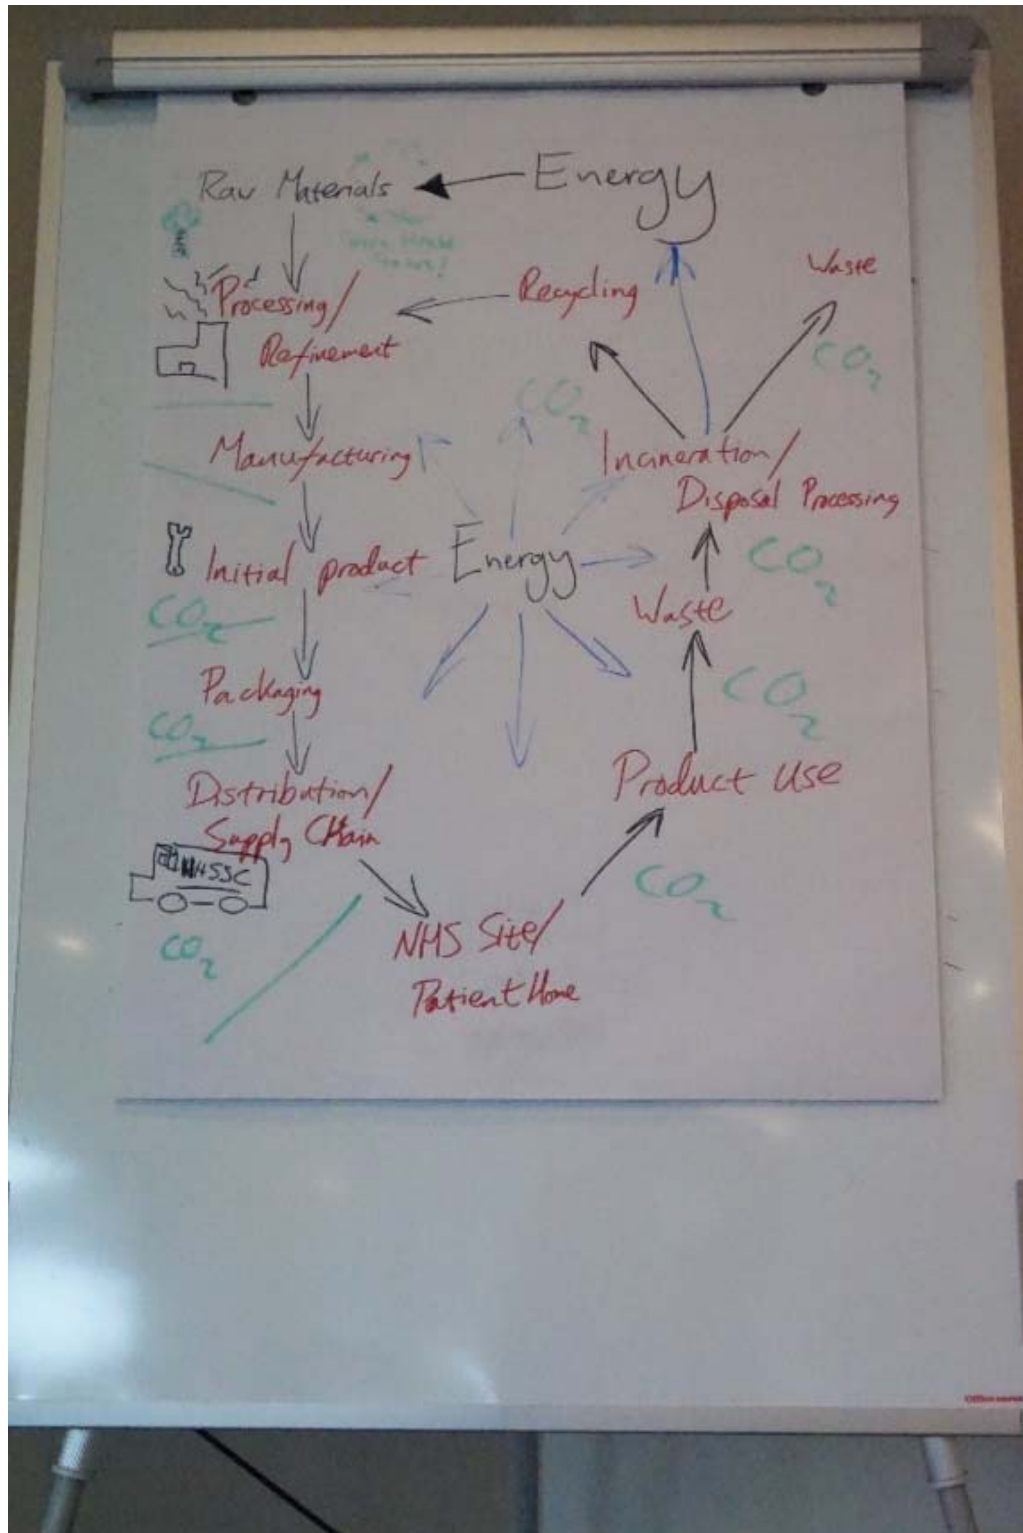 Raw Materials
Energy
Processing/
Refinement
Recycling
Waste
CO2
CO2
Manufacturing
Incineration/
Disposal Processing
Initial product
Energy
CO2
CO2
Waste
Packaging
CO2
CO2
Distribution/
Supply Chain
Product use
NHSSC
CO2
CO2
NHS Site/
Patient Home